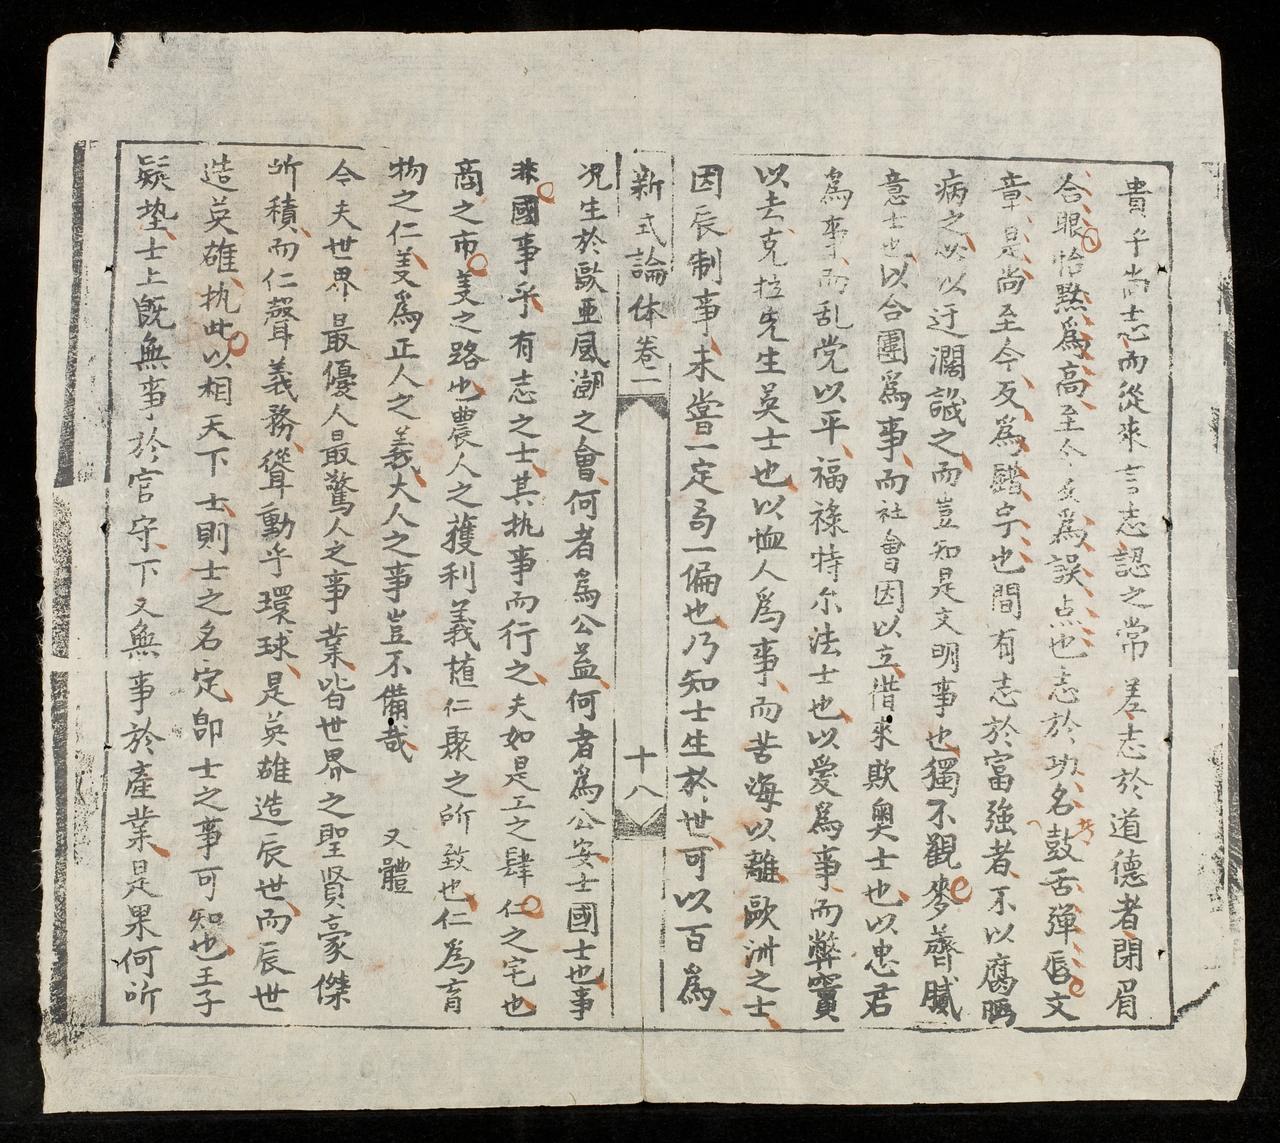 貴乎尚志而從來言志認之常差志於道德者閉眉
合眼恰默為高至今反為誤点也志於功名鼓舌彈唇文
章是尚至今反為醋字也間有志於富強者不以腐
病之必以迂濶譏之而豈知是文明事也獨不觀麥薺膩
意士也以合團為事而社會因以立借來欺奧士也以忠君
為事而乱党以平福祿特尔法士也以愛為事而弊竇
以去克拉先生英士也以恤人為事而苦海以離歐洲之士
因辰制事未嘗一定局一偏也乃知士生於世可以百為
新式論体卷一
十八
况生於歐亞風潮之會何者為公益何者為公安士國士也事
非國事乎有志之士其执事而行之夫如是工之肆仁之宅也
商之市義之路也農人之獲利義植仁聚之所致也仁為育
物之仁義為正人之義大人之事豈不備哉 又體
今夫世界最優人最驚人之事業皆世界之聖賢豪傑
所積而仁聲義務聳動乎環球是英雄造辰世而辰世
造英雄执此以相天下士則士之名定卽士之事可知也王子
疑墊士上既無事於官守下又無事於產業是果何所